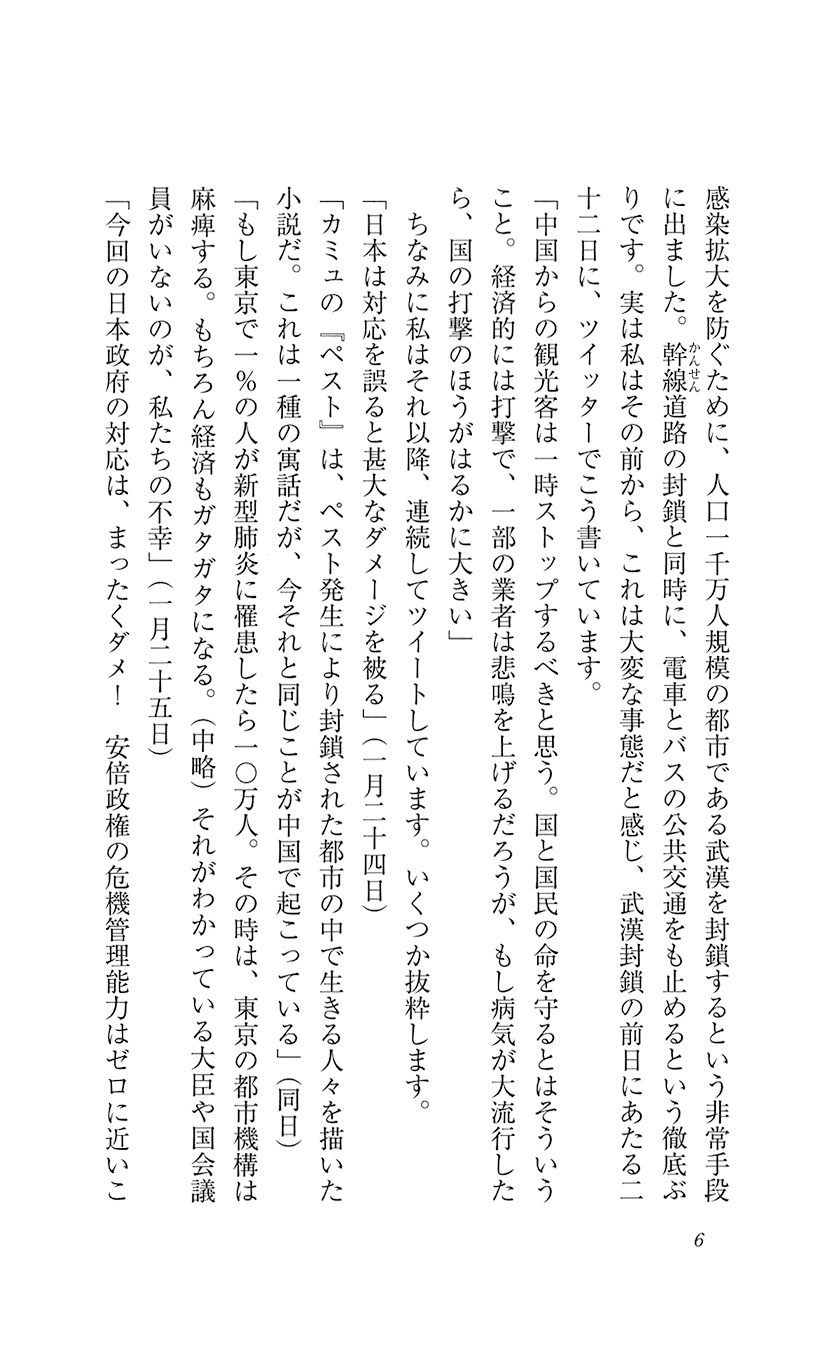 感染拡大を防ぐために、人口一千万人規模の都市である武漢を封鎖するという非常手段
に出ました。幹線道路の封鎖と同時に、電車とバスの公共交通をも止めるという徹底ぶ
かんせん
りです。実は私はその前から、これは大変な事態だと感じ、武漢封鎖の前日にあたる二
十二日に、ツイッターでこう書いています。
「中国からの観光客は一時ストップするべきと思う。国と国民の命を守るとはそういう
こと。経済的には打撃で、一部の業者は悲鳴を上げるだろうが、もし病気が大流行した
ら、国の打撃のほうがはるかに大きい」
ちなみに私はそれ以降、連続してツイートしています。いくつか抜粋します。
「日本は対応を誤ると甚大なダメージを被る」(一月二十四日)
「カミュの『ペスト』は、ペスト発生により封鎖された都市の中で生きる人々を描いた
小説だ。これは一種の寓話だが、今それと同じことが中国で起こっている」(同日)
「もし東京で一%の人が新型肺炎に罹患したら一〇万人。その時は、東京の都市機構は
麻痺する。もちろん経済もガタガタになる。(中略)それがわかっている大臣や国会議
員がいないのが、私たちの不幸」(一月二十五日)
「今回の日本政府の対応は、まったくダメ!　安倍政権の危機管理能力はゼロに近いこ
6